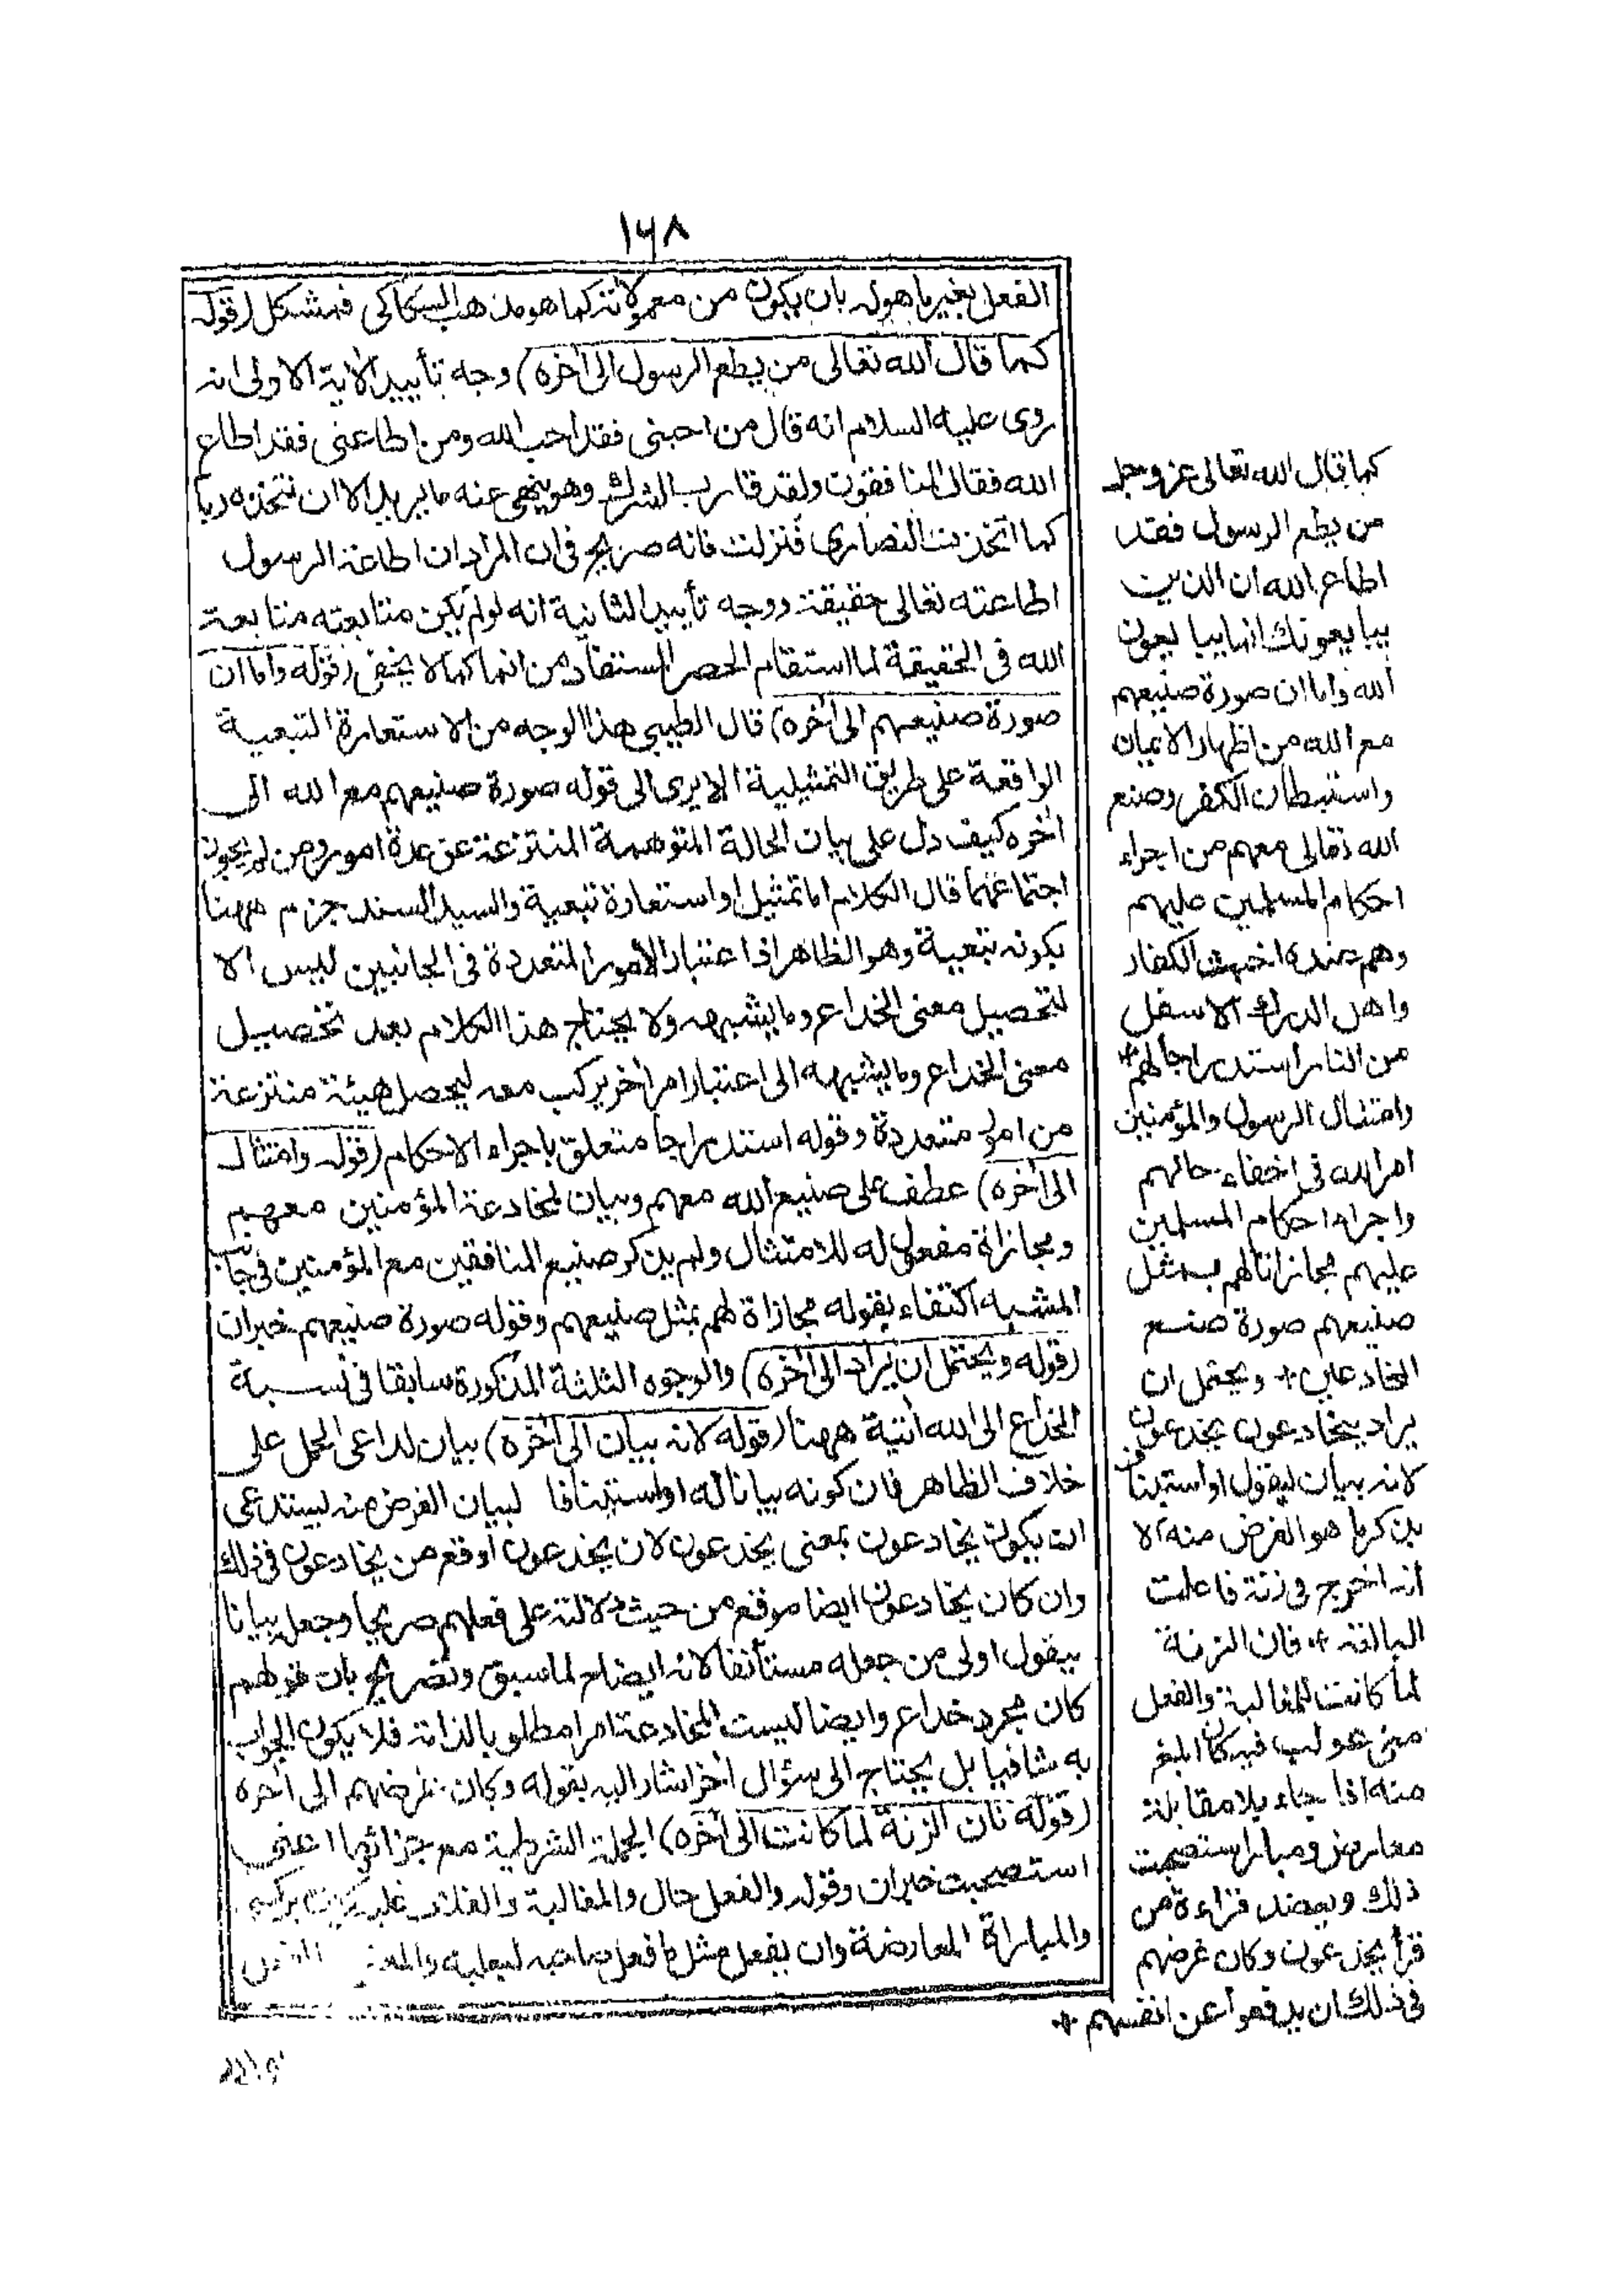 ١٦٨
الفعل بغير ما هو له بان يكون من معمولاته كما هو مذهب السكاكى فمشكل (قوله
كما قال الله تعالى من يطع الرسول الى آخره) وجه تأييد الآية الاولى انه
روى عليه السلام انه قال من احبنى فقد احب الله ومن اطاعنى فقد اطاع
الله فقال المنافقون ولقد قارب الشرك وهو ينهى عنه ما يريد الا ان نتخذه ربا
كما اتخذت النصارى فنزلت فانه صريح فى ان المراد ان اطاعة الرسول
اطاعته تعالى حقيقة ووجه تأييد الثانية انه لو لم يكن متابعته متابعة
الله فى الحقيقة لما استقام الحصر المستفاد من انما كما لا يخفى (قوله واما ان
صورة صنيعهم الى آخره) قال الطيبى هذا الوجه من الاستعارة التبعية
الواقعة على طريق التمثيلية الا يرى الى قوله صورة صنيعهم مع الله الى
آخره كيف دل على بيان الحالة المتوهمة المنتزعة عن عدة امور ومن لم يجوز
اجتماعهما قال الكلام اما تمثيل او استعارة تبعية والسيد السند جزم ههنا
بكونه تبعية وهو الظاهر اذ اعتبار الأمور المتعددة فى الجانبين ليس الا
لتحصيل معنى الخداع وما يشبهه ولا يحتاج هذا الكلام بعد تحصيل
معنى الخداع وما يشبهه الى اعتبار امر آخر يركب معه ليحصل هيئة منتزعة
من امور متعددة وقوله استدراجا متعلق باجراء الاحكام (قوله وامتثال
الى آخره) عطف على صنيع الله معهم وبيان لمخادعة المؤمنين معهم
ومجازاة مفعول له للامتثال ولم يذكر صنيع المنافقين مع المؤمنين فى جانب
المشبه اكتفاء بقوله مجازاة لهم بمثل صنيعهم وقوله صورة صنيعهم خبر ان
(قوله ويحتمل ان يراد الى آخره) والوجوه الثلثة المذكورة سابقا فى نسبة
الخداع الى الله آتية ههنا (قوله لانه بيان الى آخره) بيان لداعى الحمل على
خلاف الظاهر فان كونه بيانا له او استينافا لبيان الغرض منه ليستدعى
ان يكون يخادعون بمعنى يخدعون لان يخدعون اوقع من يخادعون فى ذلك
وان كان يخادعون ايضا موقع من حيث دلالته على فعلهم صريحا وجعل بيانا
ليقول اولى من جعله مستأنفا لانه ايضاح لما سبق وتصريح بان قولهم
كان مجرد خداع وايضا ليست المخادعة امرا مطلوبا لذاته فلا يكون الجواب
به شافيا بل يحتاج الى سؤال آخر اشار اليه بقوله وكان غرضهم الى آخره
(قوله فان الزنة لما كانت الى آخره) الجملة الشرطية مع جزائها اعنى
استصحبت خبر ان وقوله والفعل حال والمغالبة
والمباراة المعارضة وان يفعل مثل ما فعل صاحبه ليغلبه
كما قال الله تعالى عز وجل
من يطع الرسول فقد
اطاع الله ان الذين
يبايعونك انما يبايعون
الله واما ان صورة صنيعهم
مع الله من اظهار الايمان
واستبطان الكفر وصنع
الله تعالى معهم من اجراء
احكام المسلمين عليهم
وهم عنده اخبث الكفار
واهل الدرك الاسفل
من النار استدراجا لهم*
وامتثال الرسول والمؤمنين
امر الله فى اخفاء حالهم
واجراء احكام المسلمين
عليهم مجازاتا لهم بمثل
صنيعهم صورة صنيع
المخادعين * ويحتمل ان
يراد بيخادعون يخدعون
لانه بيان ليقول او استيناف
بذكر ما هو الغرض منه الا
انه اخرج فى زنة فاعلت
للمبالغة * فان الزنة
لما كانت للمغالبة والفعل
متى غولب فيه كان ابلغ
منه اذا جاء بلا مقابلة
معارض ومبار استصحبت
ذلك ويعضد قراءة من
قرأ يخدعون وكان غرضهم
فى ذلك ان يدفعوا عن انفسهم *